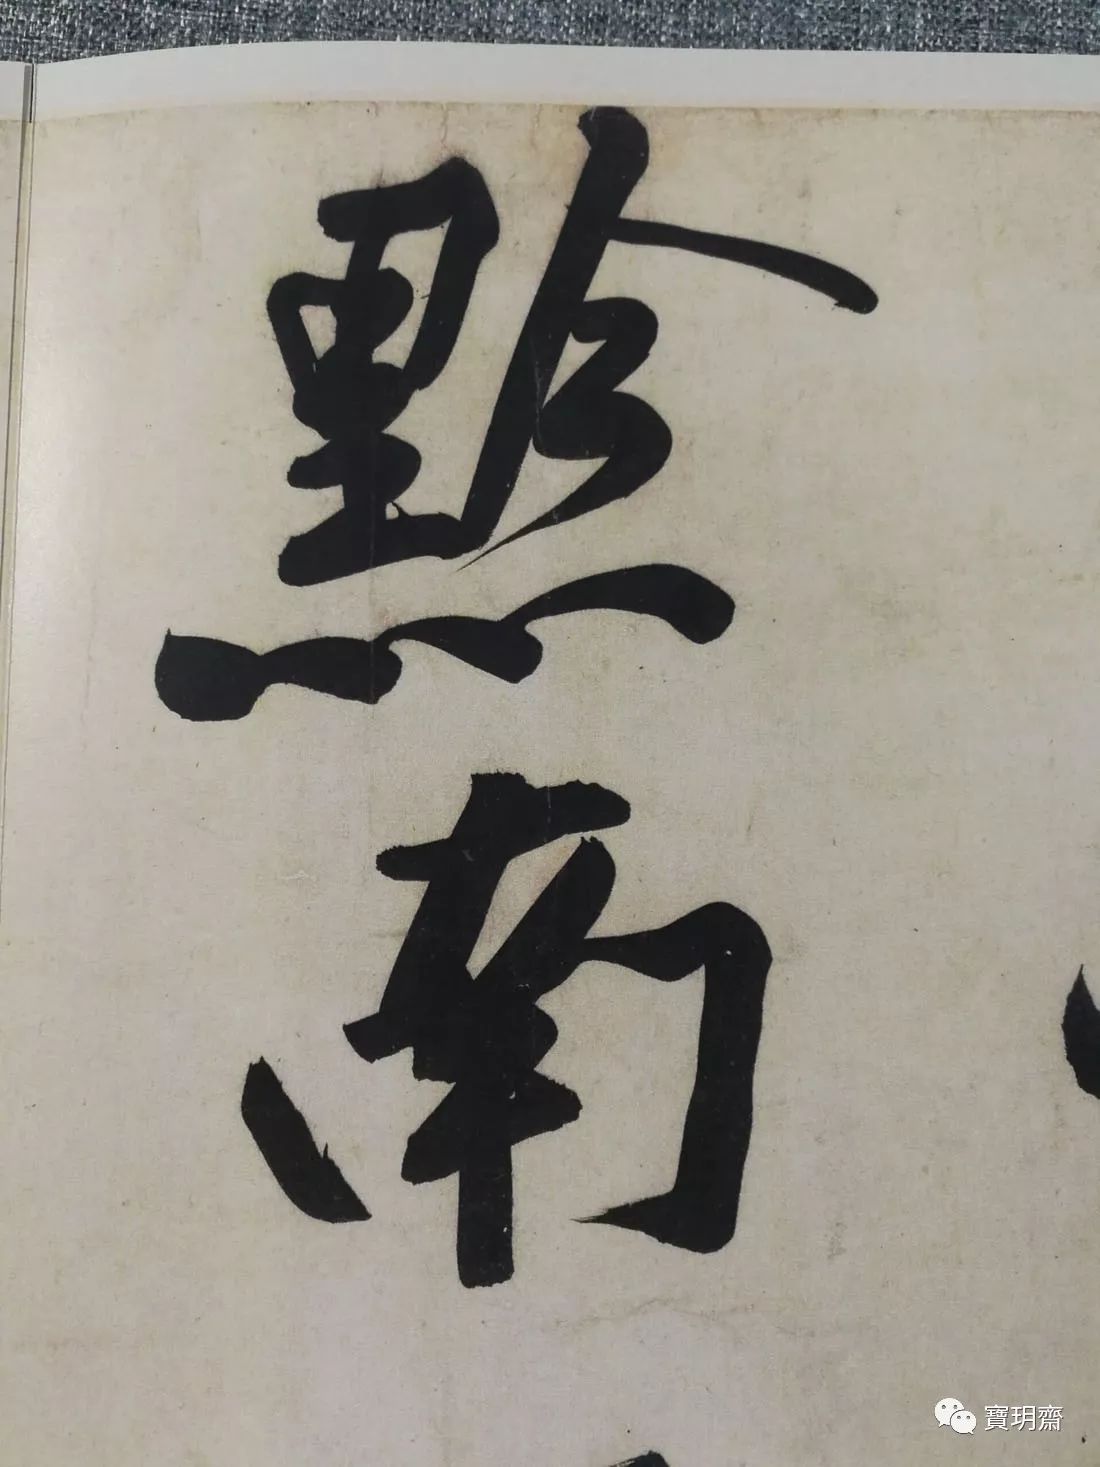 黔南
寶玥齋